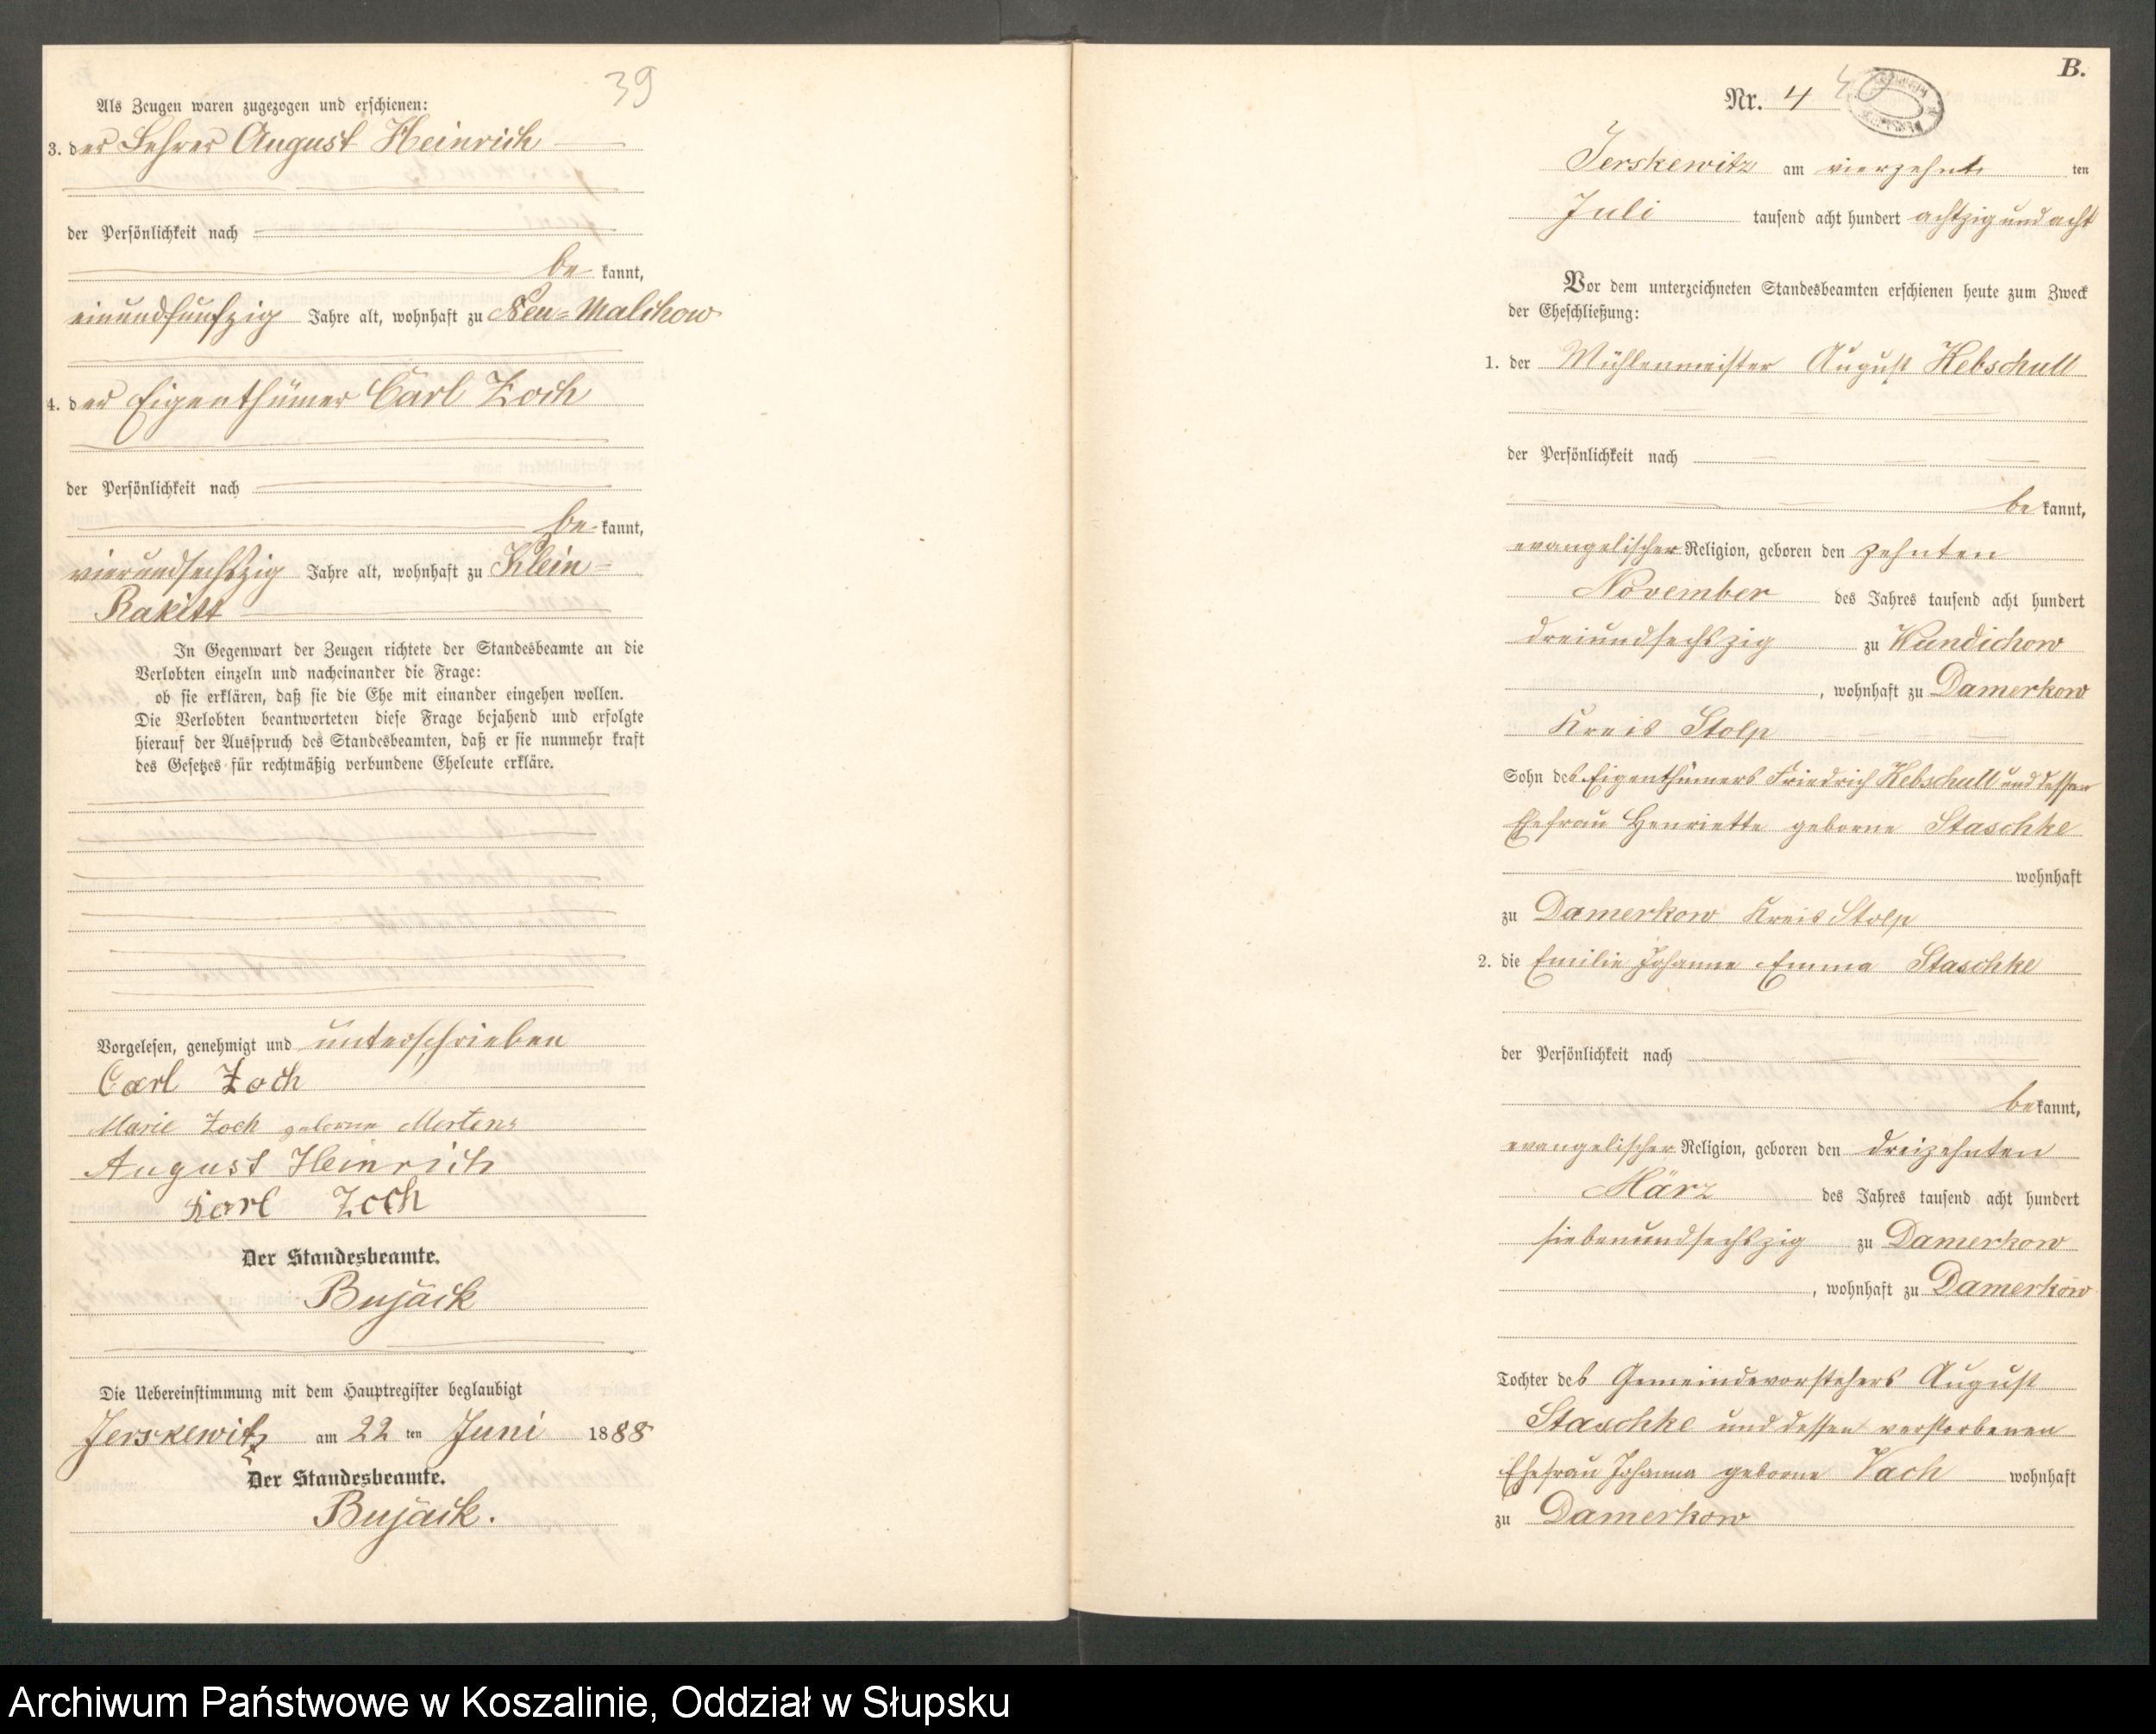 39
Als Zeugen waren zugezogen und erschienen:
3. der Lehrer August Heinrich
der Persönlichkeit nach
be kannt,
einundfünfzig Jahre alt, wohnhaft zu Neu-Malchow
4. der Eigenthümer Carl Zoch
der Persönlichkeit nach
be kannt,
vierundsechszig Jahre alt, wohnhaft zu Klein-
Rakitt
In Gegenwart der Zeugen richtete der Standesbeamte an die
Verlobten einzeln und nacheinander die Frage:
ob sie erklären, daß sie die Ehe mit einander eingehen wollen.
Die Verlobten beantworteten diese Frage bejahend und erfolgte
hierauf der Ausspruch des Standesbeamten, daß er sie nunmehr kraft
des Gesetzes für rechtmäßig verbundene Eheleute erkläre.
Vorgelesen, genehmigt und unterschrieben
Carl Zoch
Marie Zoch geborne Mertens
August Heinrich
Karl Zoch
Der Standesbeamte.
Bujack
Die Uebereinstimmung mit dem Hauptregister beglaubigt
Jerskewitz am 22 ten Juni 1888
Der Standesbeamte.
Bujack.
B.
Nr. 4
Jerskewitz am vierzehnten
Juli tausend acht hundert achtzig und acht
Vor dem unterzeichneten Standesbeamten erschienen heute zum Zweck
der Eheschließung:
1. der Mühlenmeister August Kebschull
der Persönlichkeit nach
be kannt,
evangelischer Religion, geboren den zehnten
November des Jahres tausend acht hundert
dreiundsechszig zu Wundichow
, wohnhaft zu Damerkow
Kreis Stolp
Sohn des Eigenthümers Friedrich Kebschull und dessen
Ehefrau Henriette geborne Staschke
wohnhaft
zu Damerkow Kreis Stolp
2. die Emilie Johanne Emma Staschke
der Persönlichkeit nach
be kannt,
evangelischer Religion, geboren den dreizehnten
März des Jahres tausend acht hundert
siebenundsechszig zu Damerkow
, wohnhaft zu Damerkow
Tochter des Gemeindevorstehers August
Staschke und dessen verstorbenen
Ehefrau Johanna geborne Vach wohnhaft
zu Damerkow
Archiwum Państwowe w Koszalinie, Oddział w Słupsku